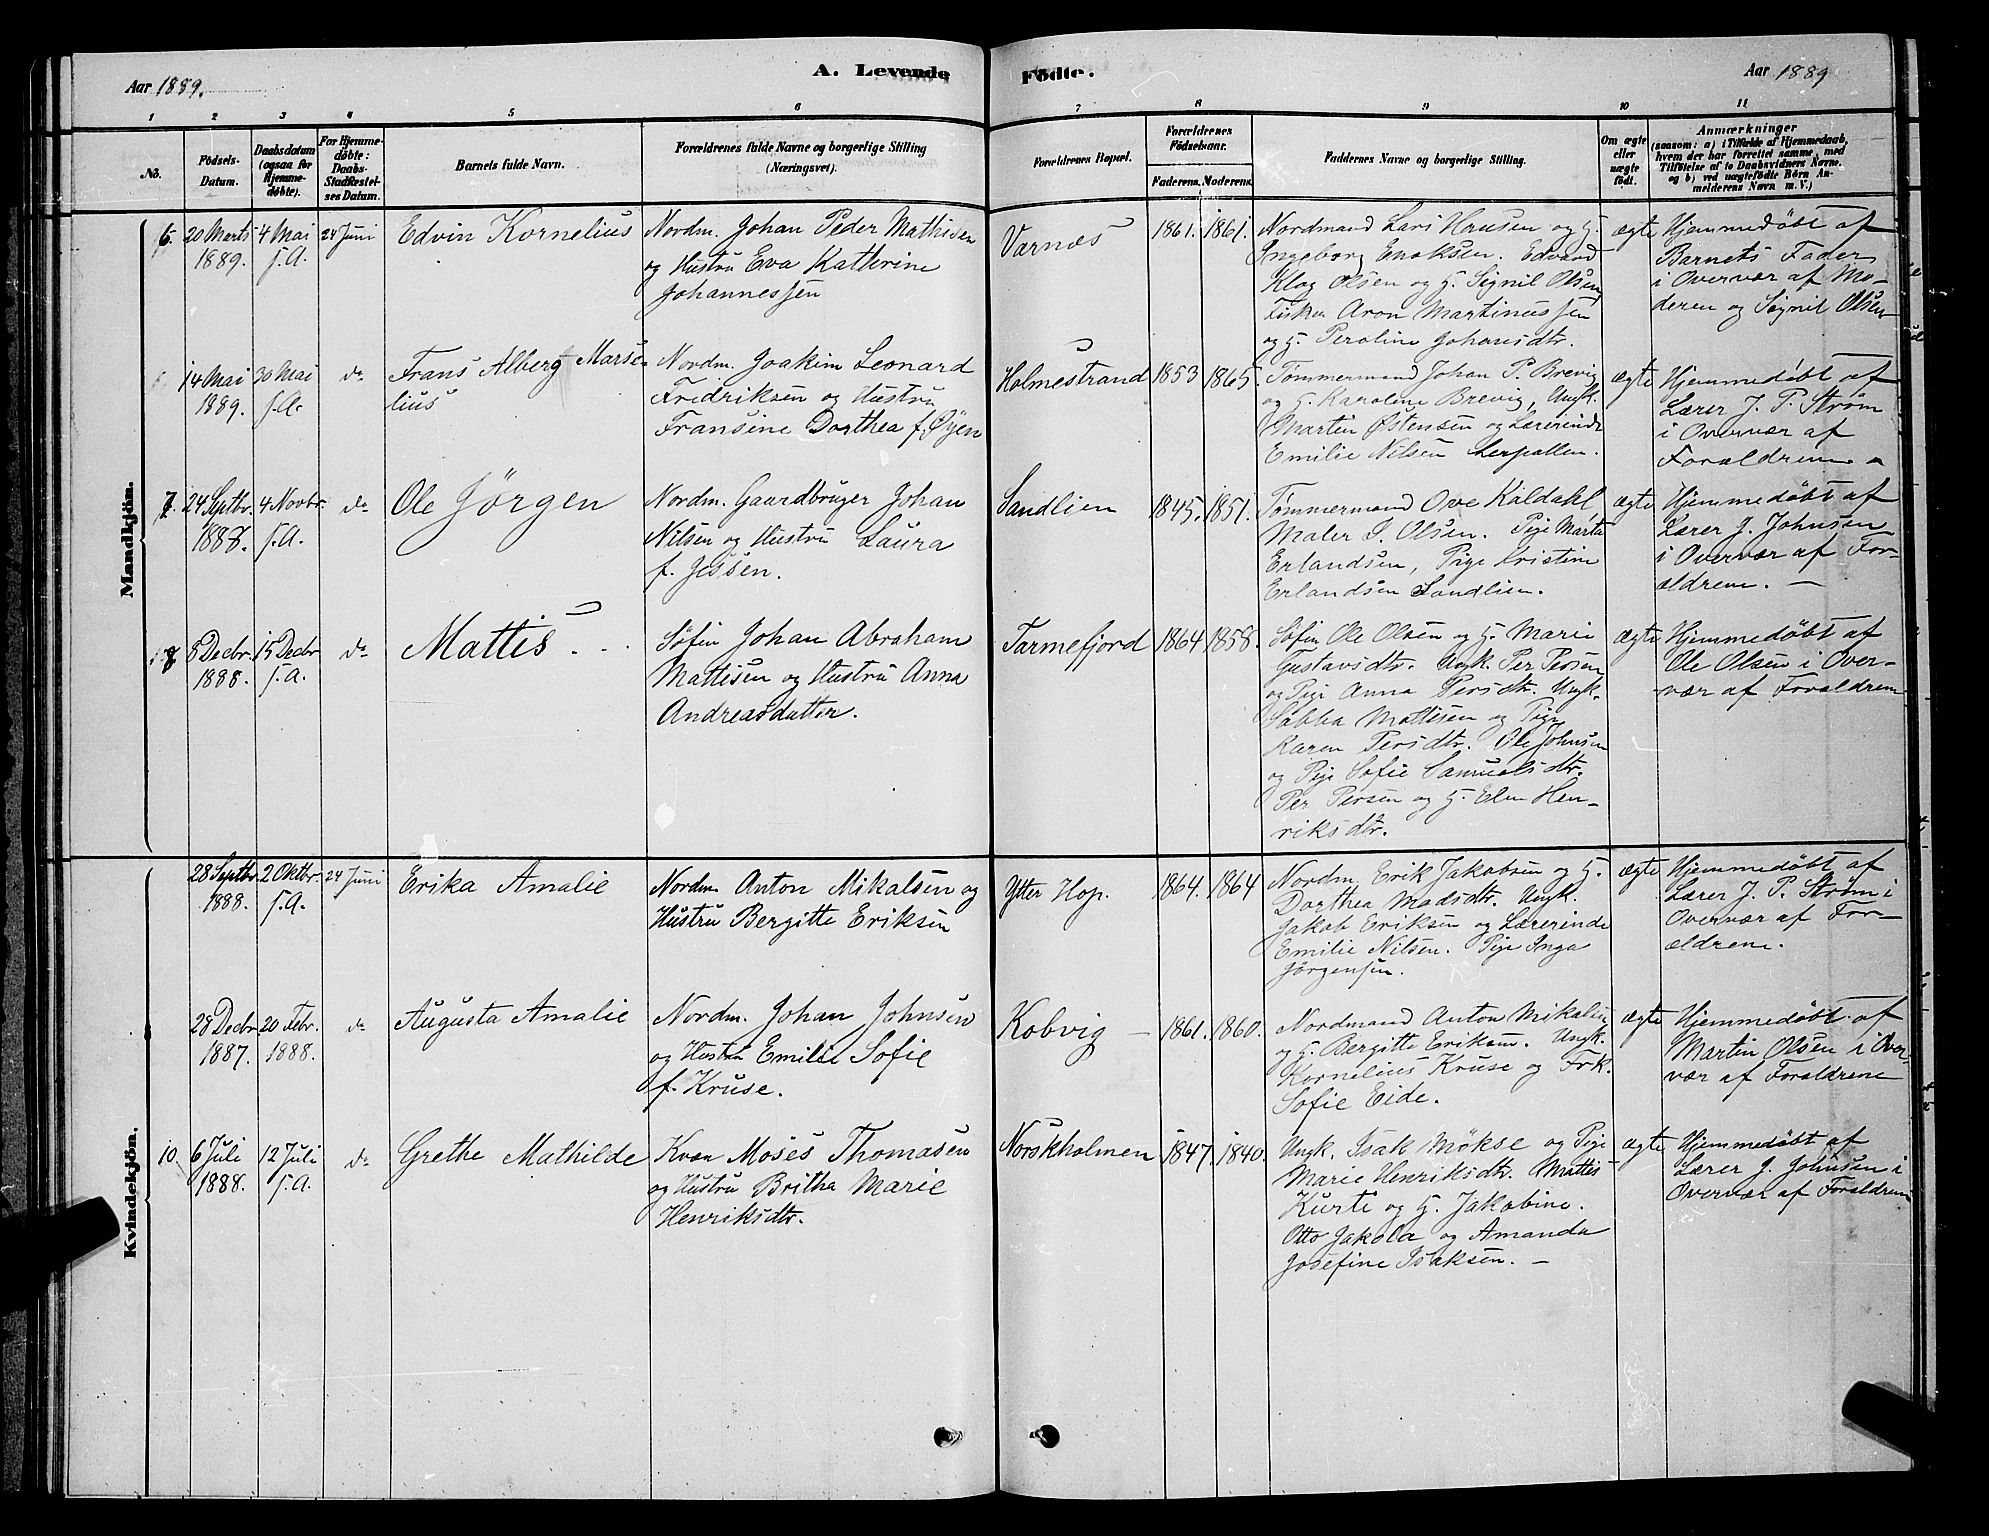 Aar 1889.
A. Levende Födte.
Aar 1889
1 2 3 4 5 6 7 8 9 10 11
No.
Födsels-
Datum.
Daabsdatum
(ogsaa for
Hjemme-
döbte).
For Hjemme-
döbte:
Daabs-
Stadfæstel-
ses Datum.
Barnets fulde Navn.
Forældrenes fulde Navne og borgerlige Stilling
(Næringsvei).
Forældrenes Bopæl.
Forældrenes
Födselsaar.
Faderens. Moderens.
Faddernes Navne og borgerlige Stilling.
Om ægte
eller
uægte
födt.
Anmærkninger
(saasom: a) i Tilfælde af Hjemmedaab,
hvem der har forrettet samme, med
Tilföielse af to Daabsvidners Navne.
og b) ved uægtefödte Börn An-
melderens Navn m. V.)
Mandkjön.
6.
20 Marts
1889.
4 Mai
s. A.
24 Juni
Edvin Kornelius
Nordm. Johan Peder Mathisen
og Hustru Eva Katherine
Johannessen
Varnæs
1861. 1861.
Nordmand Lars Hansen og H.
Ingeborg Enoksen. Edvard
Klog Olsen og H. Signil Olsen
Fisker Aron Martinussen
og H. Peroline Johansdtr.
ægte
Hjemmedøbt af
Barnets Fader
i Overvær af Mo-
deren og Signil Olsen
14 Mai
1889.
30 Mai
s. A.
do
Frans Alberg Marse-
lius
Nordm. Joakim Leonard
Fridriksen og Hustru
Fransine Dorthea f. Øyen
Holmestrand
1853 1865.
Tømmermand Johan P. Brevig
og H. Karoline Brevig, Ungk.
Martin Østensen og Lærerinde
Emilie Nilsen Lerpollen.
ægte
Hjemmedøbt af
Lærer J. P. Strøm
i Overvær af
Forældrene
7.
24 Septbr.
1888.
4 Novbr.
s. A.
do
Ole Jörgen
Nordm. Gaardbruger Johan
Nilsen og Hustru Laura
f. Jessen.
Sandlien
1845. 1851.
Tømmermand Ove Kaldahl
Maler I. Olsen. Pige Marta
Erlandsen, Pige Kristine
Erlandsen Sandlien.
ægte
Hjemmedøbt af
Lærer J. Johnsen
i Overvær af For-
ældrene. —
8
8 Decbr.
1888.
15 Decbr
s. A.
do
Mattis
Søfin Johan Abraham
Mattisen og Hustru Anna
Andreasdatter.
Tarmefjord
1864 1858.
Søfin Ole Olsen og H. Marie
Gustavsdtr. Ungk. Per Persen
og Pige Anna Persdtr. Ungk.
Sabba Mattisen og Pige
Karen Persdtr. Ole Johnsen
og Pige Sofie Samuelsdtr.
Per Persen og H. Elen Hen-
riksdtr.
ægte
Hjemmedøbt af
Ole Olsen i Over-
vær af Forældrene
Kvindekjön.
28 Septbr.
1888.
2 Oktbr.
s. A.
24 Juni
Erika Amalie
Nordm. Anton Mikalsen og
Hustru Bergitte Eriksen
Ytter Hop.
1864. 1864
Nordm. Erik Jakobsen og H.
Dorthea Madsdtr. Ungk.
Jakob Eriksen og Lærerinde
Emilie Nilsen. Pige Inga
Jørgensen.
ægte
Hjemmedøbt af
Lærer J. P. Strøm i
Overvær af For-
ældrene.
28 Decbr.
1887.
20 Febr.
1888.
do
Augusta Amalie
Nordm. Johan Johnsen
og Hustru Emilie Sofie
f. Kruse.
Kobvig —
1861. 1860.
Nordmand Anton Mikalsen
og H. Bergitte Eriksen. Ungk.
Kornelius Kruse og Frk.
Sofie Eide.
ægte
Hjemmedøbt af
Martin Olsen i Over-
vær af Forældrene
10
6 Juli
1888.
12 Juli
s. A.
do
Grethe Mathilde
Kvæn Moses Thomasen
og Hustru Britha Marie
Henriksdtr.
Norskholmen
1847. 1840.
Ungk. Isak Mökse og Pige
Marie Henriksdtr. Mattis
Kurte og H. Jakobine.
Otto Jakola og Amanda
Josefine Isaksen. —
ægte
Hjemmedøbt af
Lærer J. Johnsen i
Overvær af Forældrene